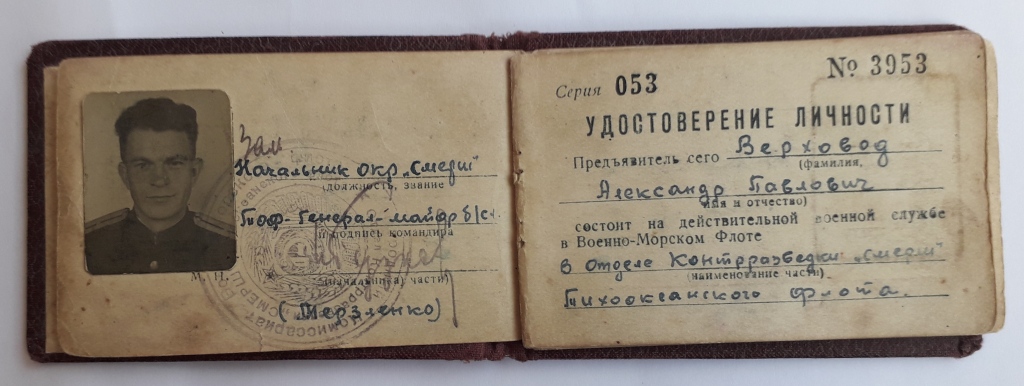 Зам
Начальник ОКР „Смерш"
(должность, звание
Тоф-Генерал-майор б/сл.
и подпись командира
начальника части)
М. П.
(Мерзленко)
Серия 053
№ 3953
УДОСТОВЕРЕНИЕ ЛИЧНОСТИ
Предъявитель сего Верховод
(фамилия,
Александр Павлович
имя и отчество)
состоит на действительной военной службе
в Военно-Морском Флоте
в отделе Контрразведки „Смерш"
(наименование части)
Тихоокеанского Флота.